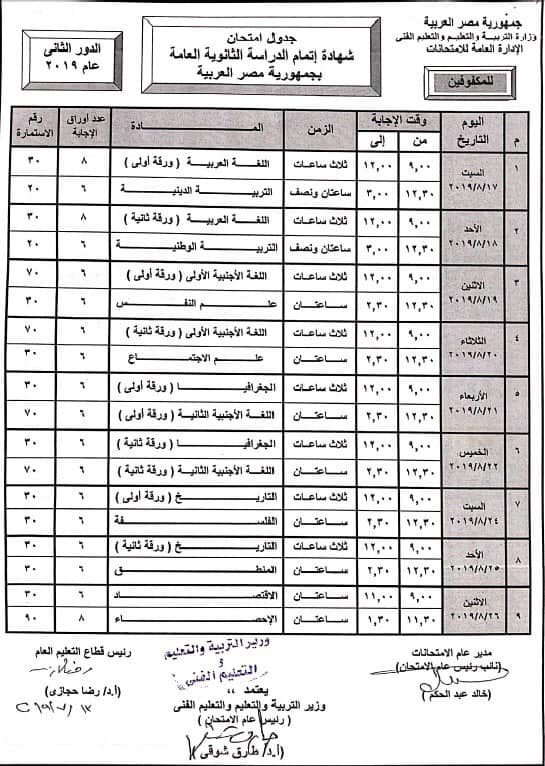 جمهورية مصر العربية
وزارة التربية والتعليم والتعليم الفنى
الإدارة العامة للامتحانات
للمكفوفين
جدول امتحان
شهادة إتمام الدراسة الثانوية العامة
بجمهورية مصر العربية
الدور الثانى
عام ٢٠١٩
م اليوم التاريخ وقت الإجابة من إلى الزمن المادة عدد أوراق الإجابة رقم الاستمارة
١ السبت ٢٠١٩/٨/١٧ ٩,٠٠ ١٢,٠٠ ثلاث ساعات اللغة العربية ( ورقة أولى ) ٨ ٣٠
١٢,٣٠ ٣,٠٠ ساعتان ونصف التربية الدينية ٦ ٢٠
٢ الأحد ٢٠١٩/٨/١٨ ٩,٠٠ ١٢,٠٠ ثلاث ساعات اللغة العربية ( ورقة ثانية ) ٨ ٣٠
١٢,٣٠ ٣,٠٠ ساعتان ونصف التربية الوطنية ٦ ٢٠
٣ الاثنين ٢٠١٩/٨/١٩ ٩,٠٠ ١٢,٠٠ ثلاث ساعات اللغة الأجنبية الأولى ( ورقة أولى ) ٦ ٧٠
١٢,٣٠ ٢,٣٠ ساعتان علم النفس ٦ ٣٠
٤ الثلاثاء ٢٠١٩/٨/٢٠ ٩,٠٠ ١٢,٠٠ ثلاث ساعات اللغة الأجنبية الأولى ( ورقة ثانية ) ٦ ٧٠
١٢,٣٠ ٢,٣٠ ساعتان علم الاجتماع ٦ ٣٠
٥ الأربعاء ٢٠١٩/٨/٢١ ٩,٠٠ ١٢,٠٠ ثلاث ساعات الجغرافيا ( ورقة أولى ) ٦ ٣٠
١٢,٣٠ ٢,٣٠ ساعتان اللغة الأجنبية الثانية ( ورقة أولى ) ٦ ٧٠
٦ الخميس ٢٠١٩/٨/٢٢ ٩,٠٠ ١٢,٠٠ ثلاث ساعات الجغرافيا ( ورقة ثانية ) ٦ ٣٠
١٢,٣٠ ٢,٣٠ ساعتان اللغة الأجنبية الثانية ( ورقة ثانية ) ٦ ٧٠
٧ السبت ٢٠١٩/٨/٢٤ ٩,٠٠ ١٢,٠٠ ثلاث ساعات التاريخ ( ورقة أولى ) ٦ ٣٠
١٢,٣٠ ٢,٣٠ ساعتان الفلسفة ٦ ٣٠
٨ الأحد ٢٠١٩/٨/٢٥ ٩,٠٠ ١٢,٠٠ ثلاث ساعات التاريخ ( ورقة ثانية ) ٦ ٣٠
١٢,٣٠ ٢,٣٠ ساعتان المنطق ٦ ٣٠
٩ الاثنين ٢٠١٩/٨/٢٦ ٩,٠٠ ١١,٠٠ ساعتان الاقتصاد ٦ ٣٠
١١,٣٠ ١,٣٠ ساعتان الإحصاء ٨ ٩٠
مدير عام الامتحانات
(نائب رئيس عام الامتحان)
(خالد عبد الحكم)
وزير التربية والتعليم
و
التعليم الفنى
يعتمد ،،
وزير التربية والتعليم والتعليم الفنى
( رئيس عام الامتحان )
(أ.د/ طارق شوقى)
رئيس قطاع التعليم العام
(أ.د/ رضا حجازى)